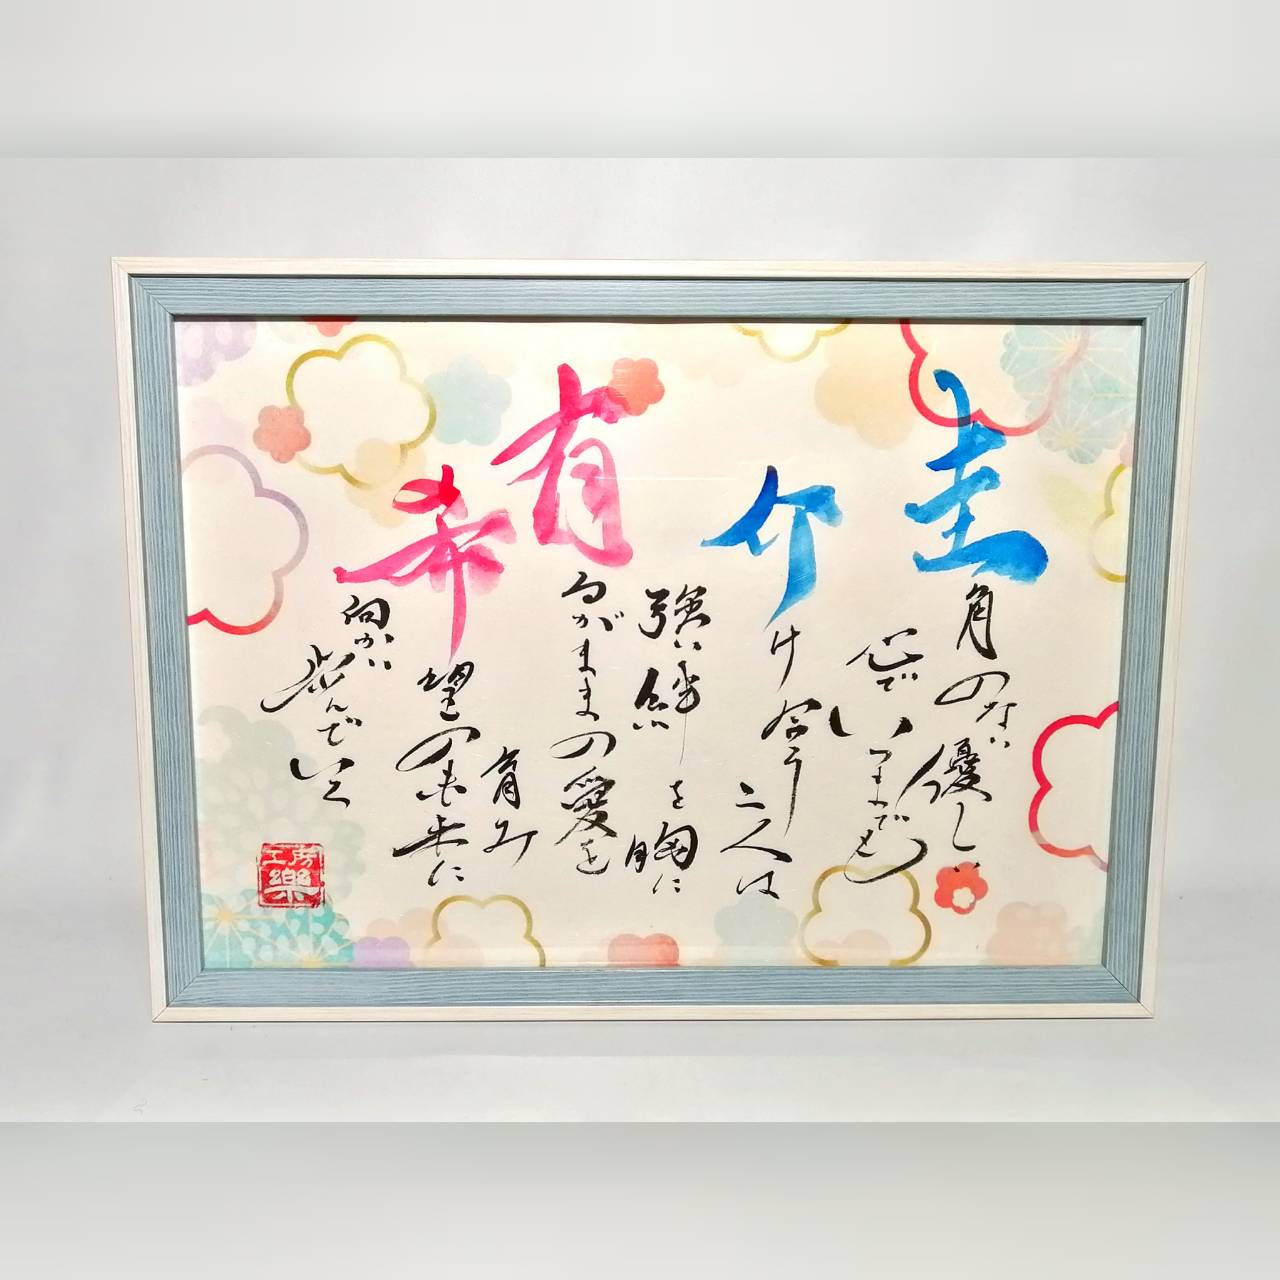 圭角のない優しい
心で いつまでも
介け合う 二人は
強い絆を胸に
有るがままの愛を
育み
希望の未来に
向かい
歩んでいく
工房
樂